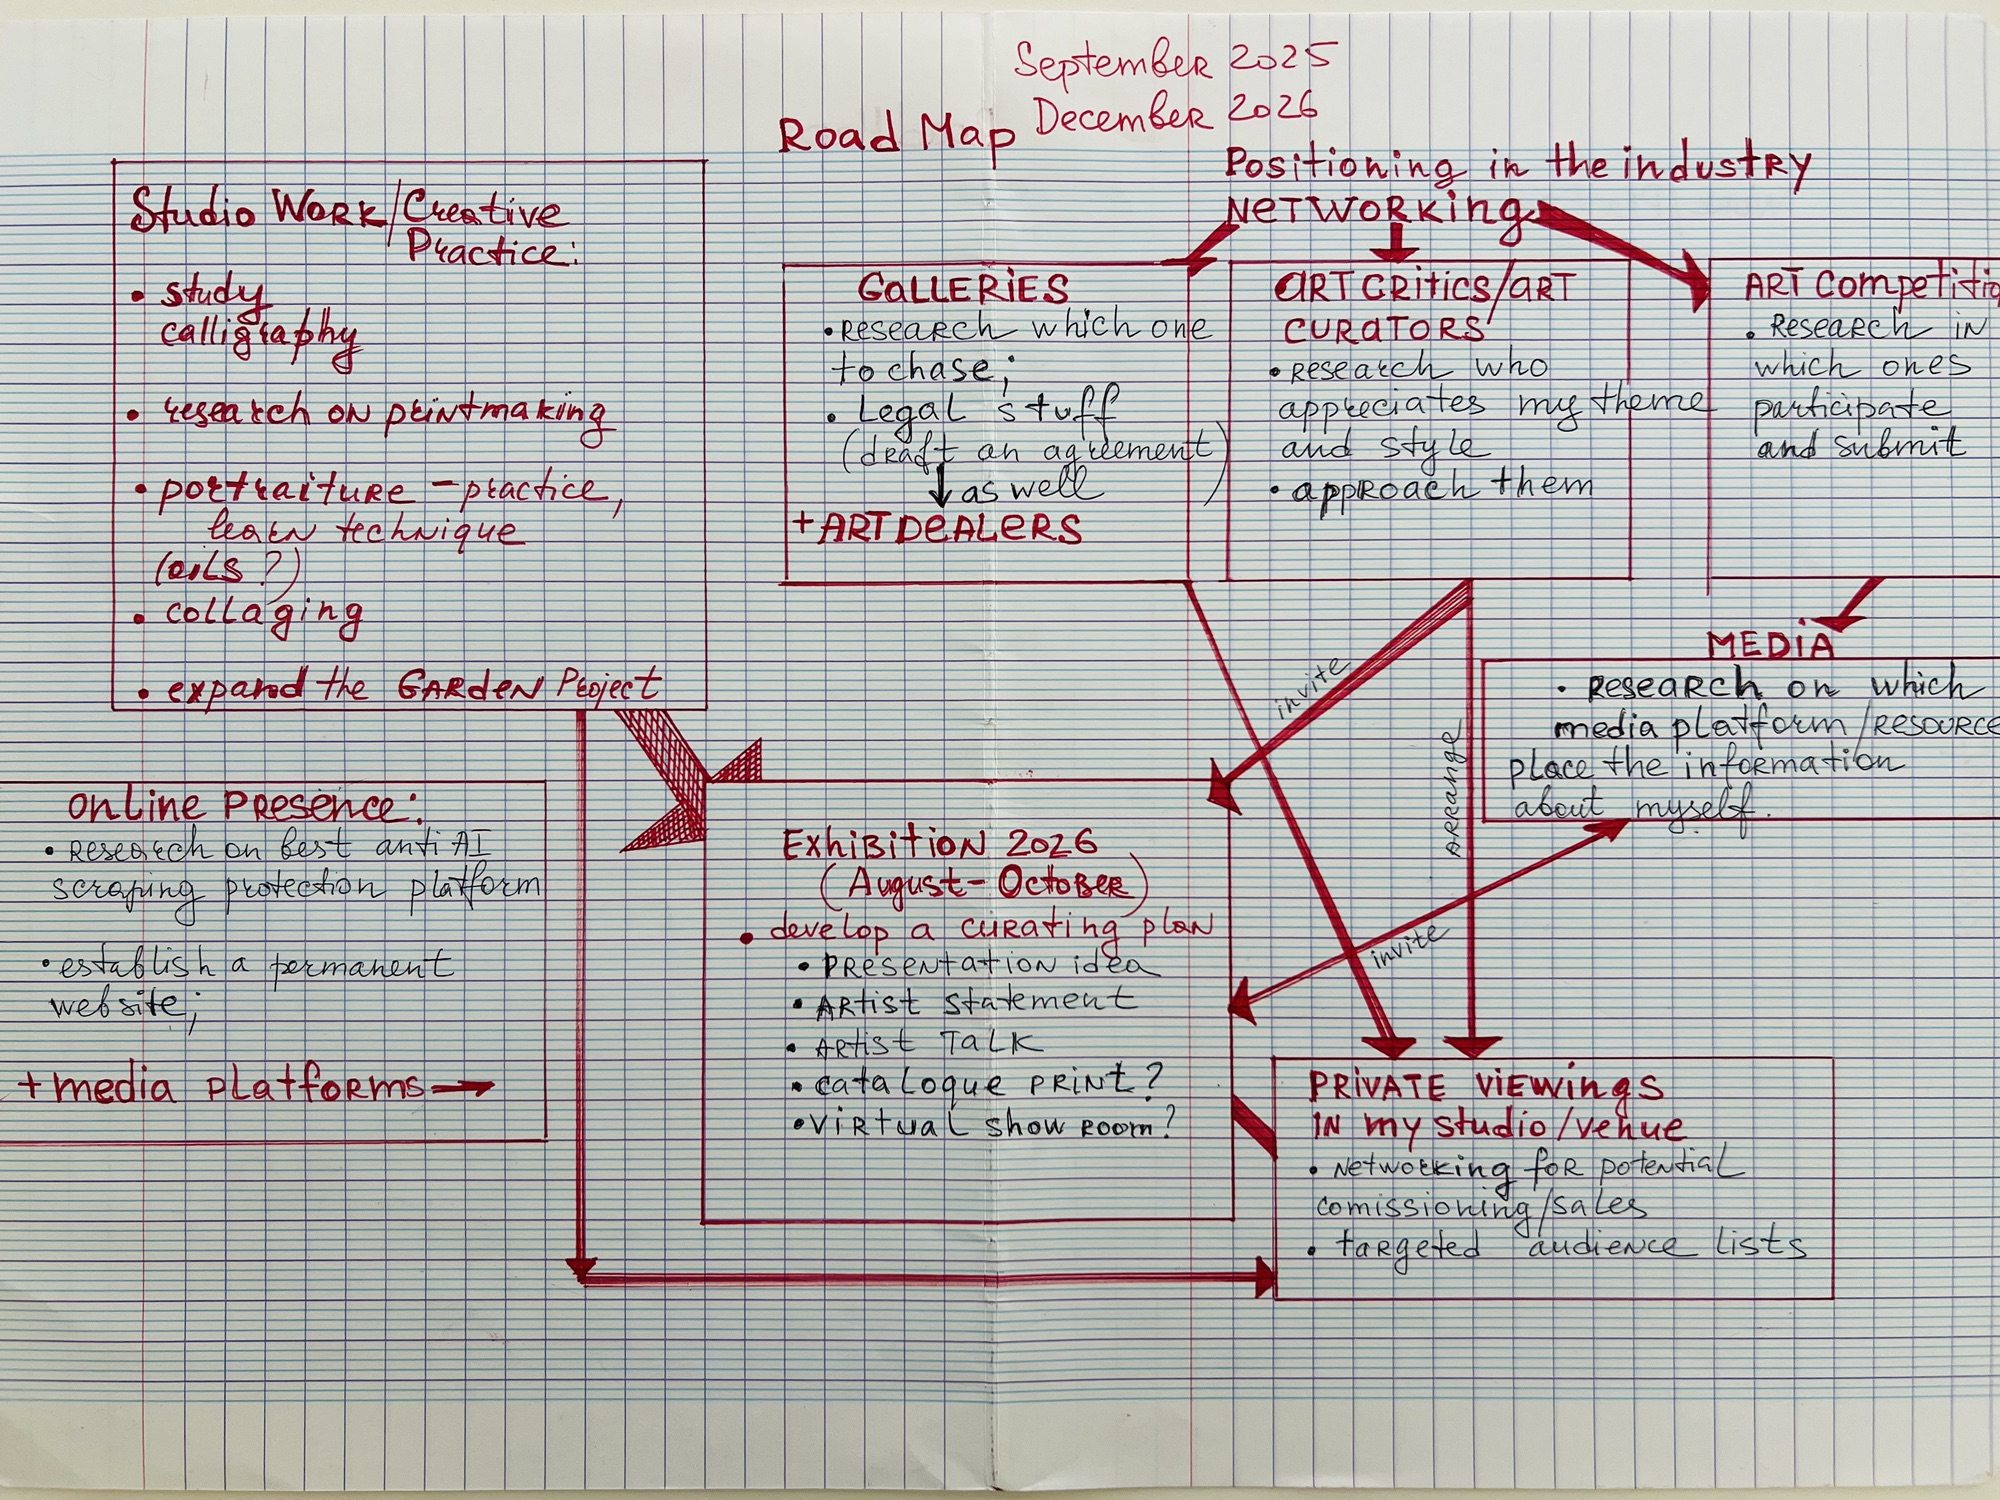 September 2025
December 2026
Road Map
Studio Work/Creative
Practice:
• study
calligraphy
• research on printmaking
• portraiture – practice,
learn technique
(oils?)
• collaging
• expand the Garden Project
Positioning in the industry
NETWORKING
GALLERIES
• research which one
to chase;
• Legal stuff
(draft an agreement)
as well
+ ART DEALERS
ART CRITICS/ART
CURATORS
• research who
appreciates my theme
and style
• approach them
ART Competitio
• Research in
which ones
participate
and submit
MEDIA
• Research on which
media platform/resource
place the information
about myself.
invite
arrange
invite
Online Presence:
• Research on best anti AI
scraping protection platform
• establish a permanent
website;
+ media platforms →
Exhibition 2026
(August – October)
• develop a curating plan
• presentation idea
• Artist statement
• Artist Talk
• catalogue print?
• virtual show room?
PRIVATE VIEWINGS
IN my studio/venue
• Networking for potential
comissioning/sales
• targeted audience lists